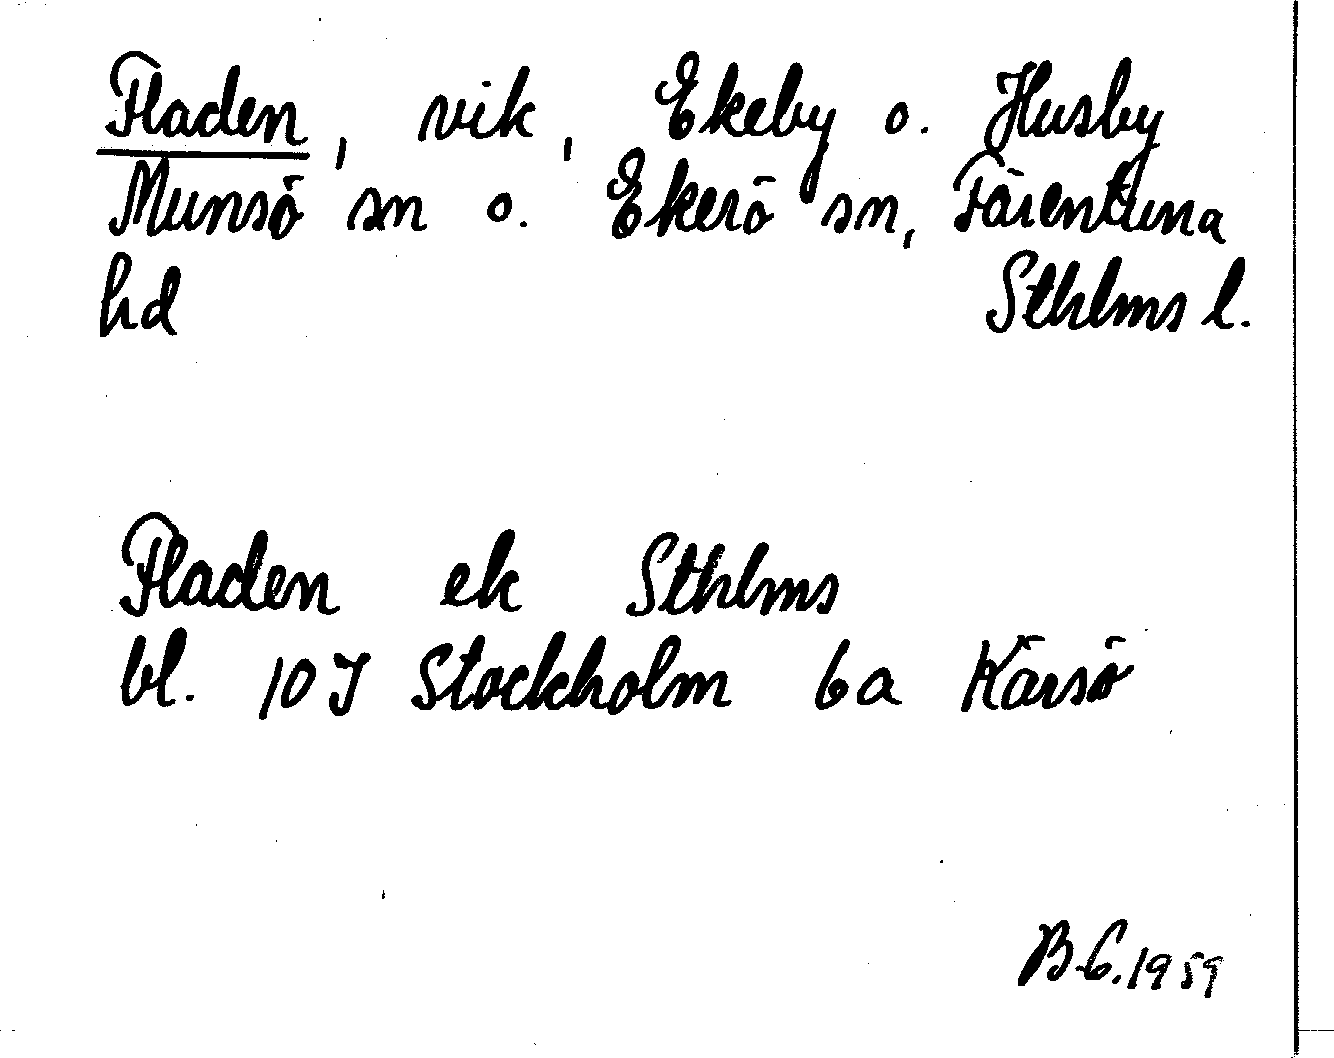 Fladen, vik, Ekeby o. Husby
Munsö sn o. Ekerö sn, Färentuna
hd Sthlms l.
Fladen ek Sthlms
bl. 10 I Stockholm 6a Kärsö
B-G. 1959